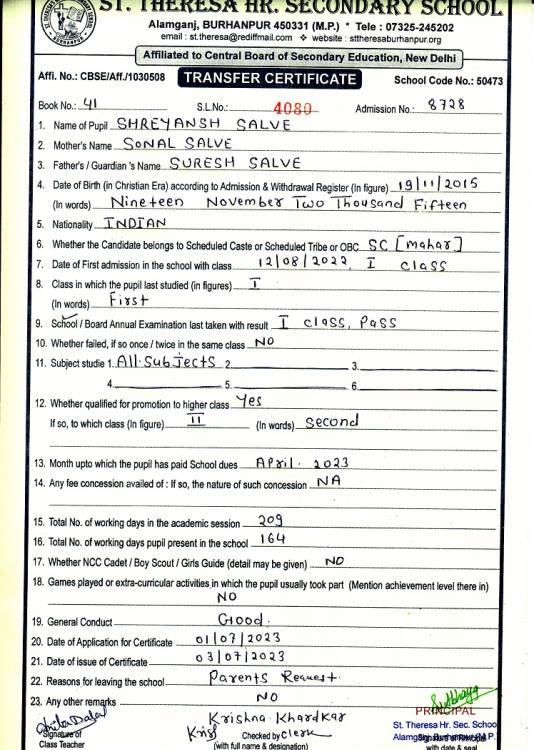 ST. THERESA HR. SECONDARY SCHOOL
Alamganj, BURHANPUR 450331 (M.P.) * Tele : 07325-245202
email : st.theresa@rediffmail.com ❖ website : sttheresaburhanpur.org
Affiliated to Central Board of Secondary Education, New Delhi
Affi. No.: CBSE/Aff./1030508 TRANSFER CERTIFICATE School Code No.: 50473
Book No.: 41 S.L.No.: 4080 Admission No.: 8728
1. Name of Pupil SHREYANSH SALVE
2. Mother's Name SONAL SALVE
3. Father's / Guardian 's Name SURESH SALVE
4. Date of Birth (in Christian Era) according to Admission & Withdrawal Register (In figure) 19/11/2015
(In words) Nineteen November Two Thousand Fifteen
5. Nationality INDIAN
6. Whether the Candidate belongs to Scheduled Caste or Scheduled Tribe or OBC SC [Mahar]
7. Date of First admission in the school with class 12/08/2022, I class
8. Class in which the pupil last studied (in figures) I
(In words) First
9. School / Board Annual Examination last taken with result I class, Pass
10. Whether failed, if so once / twice in the same class NO
11. Subject studie 1. All Subjects 2. 3.
4. 5. 6.
12. Whether qualified for promotion to higher class Yes
If so, to which class (In figure) II (In words) Second
13. Month upto which the pupil has paid School dues April. 2023
14. Any fee concession availed of : If so, the nature of such concession NA
15. Total No. of working days in the academic session 209
16. Total No. of working days pupil present in the school 164
17. Whether NCC Cadet / Boy Scout / Girls Guide (detail may be given) NO
18. Games played or extra-curricular activities in which the pupil usually took part (Mention achievement level there in)
NO
19. General Conduct Good.
20. Date of Application for Certificate 01/07/2023
21. Date of issue of Certificate 03/07/2023
22. Reasons for leaving the school Parents Request.
23. Any other remarks NO
Krishna Khardkar
PRINCIPAL
St. Theresa Hr. Sec. School
Signature of Checked by Clerk Alamganj, Burhanpur M.P.
Class Teacher (with full name & designation) with date & seal